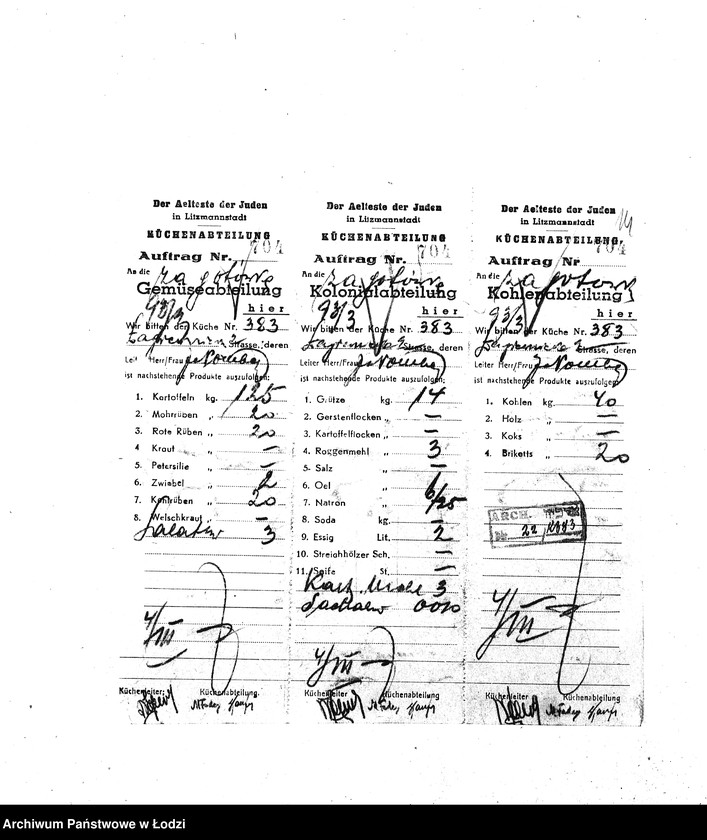 Der Aelteste der Juden
in Litzmannstadt
KÜCHENABTEILUNG
704
Auftrag Nr.
An die
Gemüseabteilung
hier
93/3
Wir bitten der Küche Nr. 383
Strasse, deren
Leiter Herr/Frau
ist nachstehende Produkte auszufolgen:
1. Kartoffeln kg. 125
2. Mohrrüben „ 20
3. Rote Rüben „ 20
4 Kraut „ —
5. Petersilie „ —
6. Zwiebel „ 2
7. Kohlrüben „ 20
8. Welschkraut „ —
3
4/III
Küchenleiter: Küchenabteilung.
Der Aelteste der Juden
in Litzmannstadt
KÜCHENABTEILUNG
704
Auftrag Nr.
An die
Kolonialabteilung
hier
93/3
Wir bitten der Küche Nr. 383
Strasse, deren
Leiter Herr/Frau
ist nachstehende Produkte auszufolgen:
1. Grütze kg. 14
2. Gerstenflocken „ —
3. Kartoffelflocken „ —
4. Roggenmehl „ 3
5. Salz „ —
6. Oel „
7. Natron „
8. Soda kg. —
9. Essig Lit. 2
10. Streichhölzer Sch. —
11. Seife St. —
3
4/III
Küchenleiter Küchenabteilung
Der Aelteste der Juden
in Litzmannstadt
KÜCHENABTEILUNG
704
Auftrag Nr.
An die
Kohlenabteilung
hier
93/3
Wir bitten der Küche Nr. 383
Strasse, deren
Leiter Herr/Frau
ist nachstehende Produkte auszufolgen
1. Kohlen kg. 40
2. Holz „ —
3. Koks „ —
4. Briketts „ 20
ARCH.
4/III
Küchenleiter Küchenabteilung
Archiwum Państwowe w Łodzi